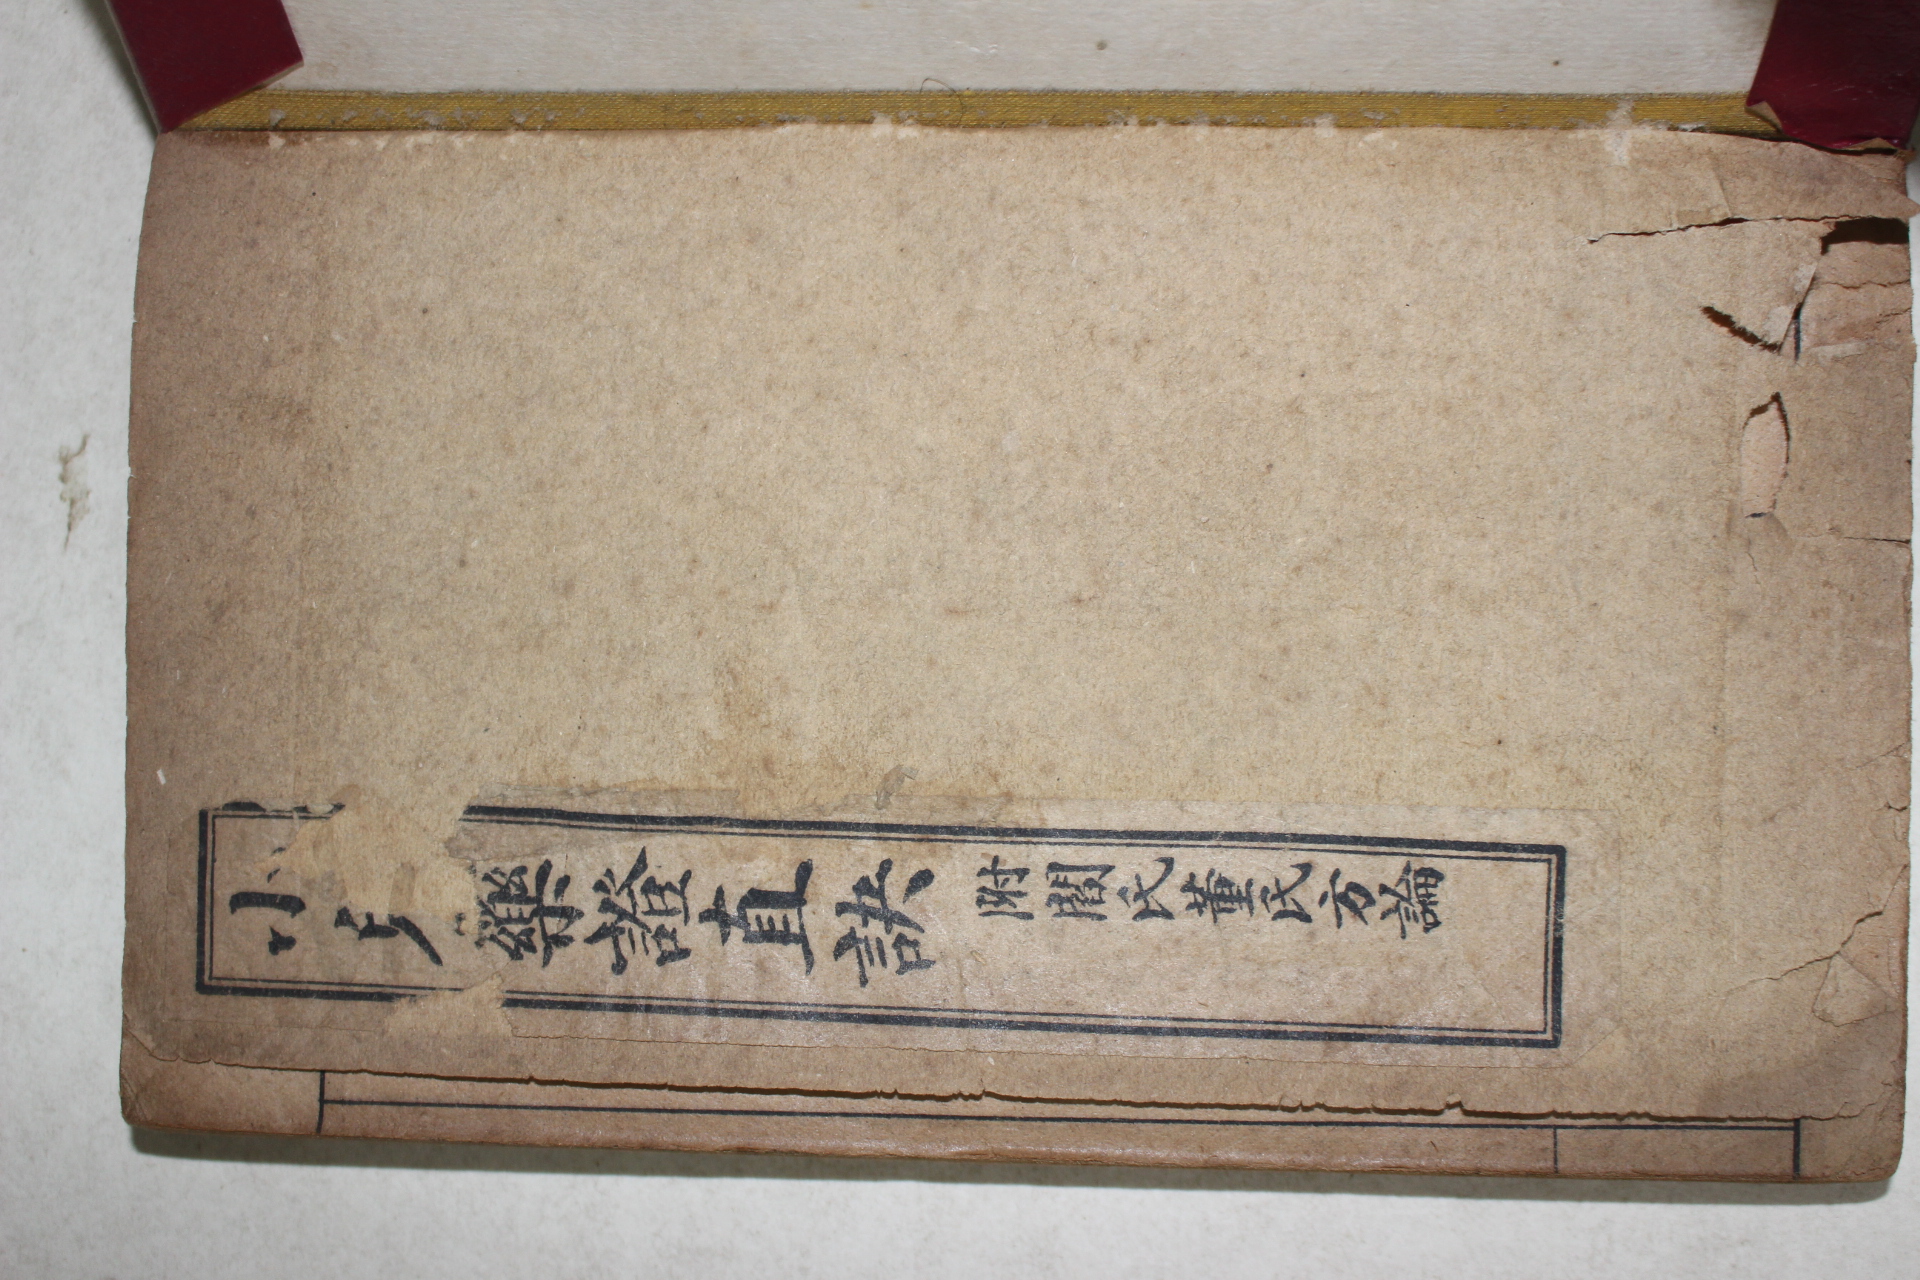 小兒藥證直訣
附閻氏董氏方論